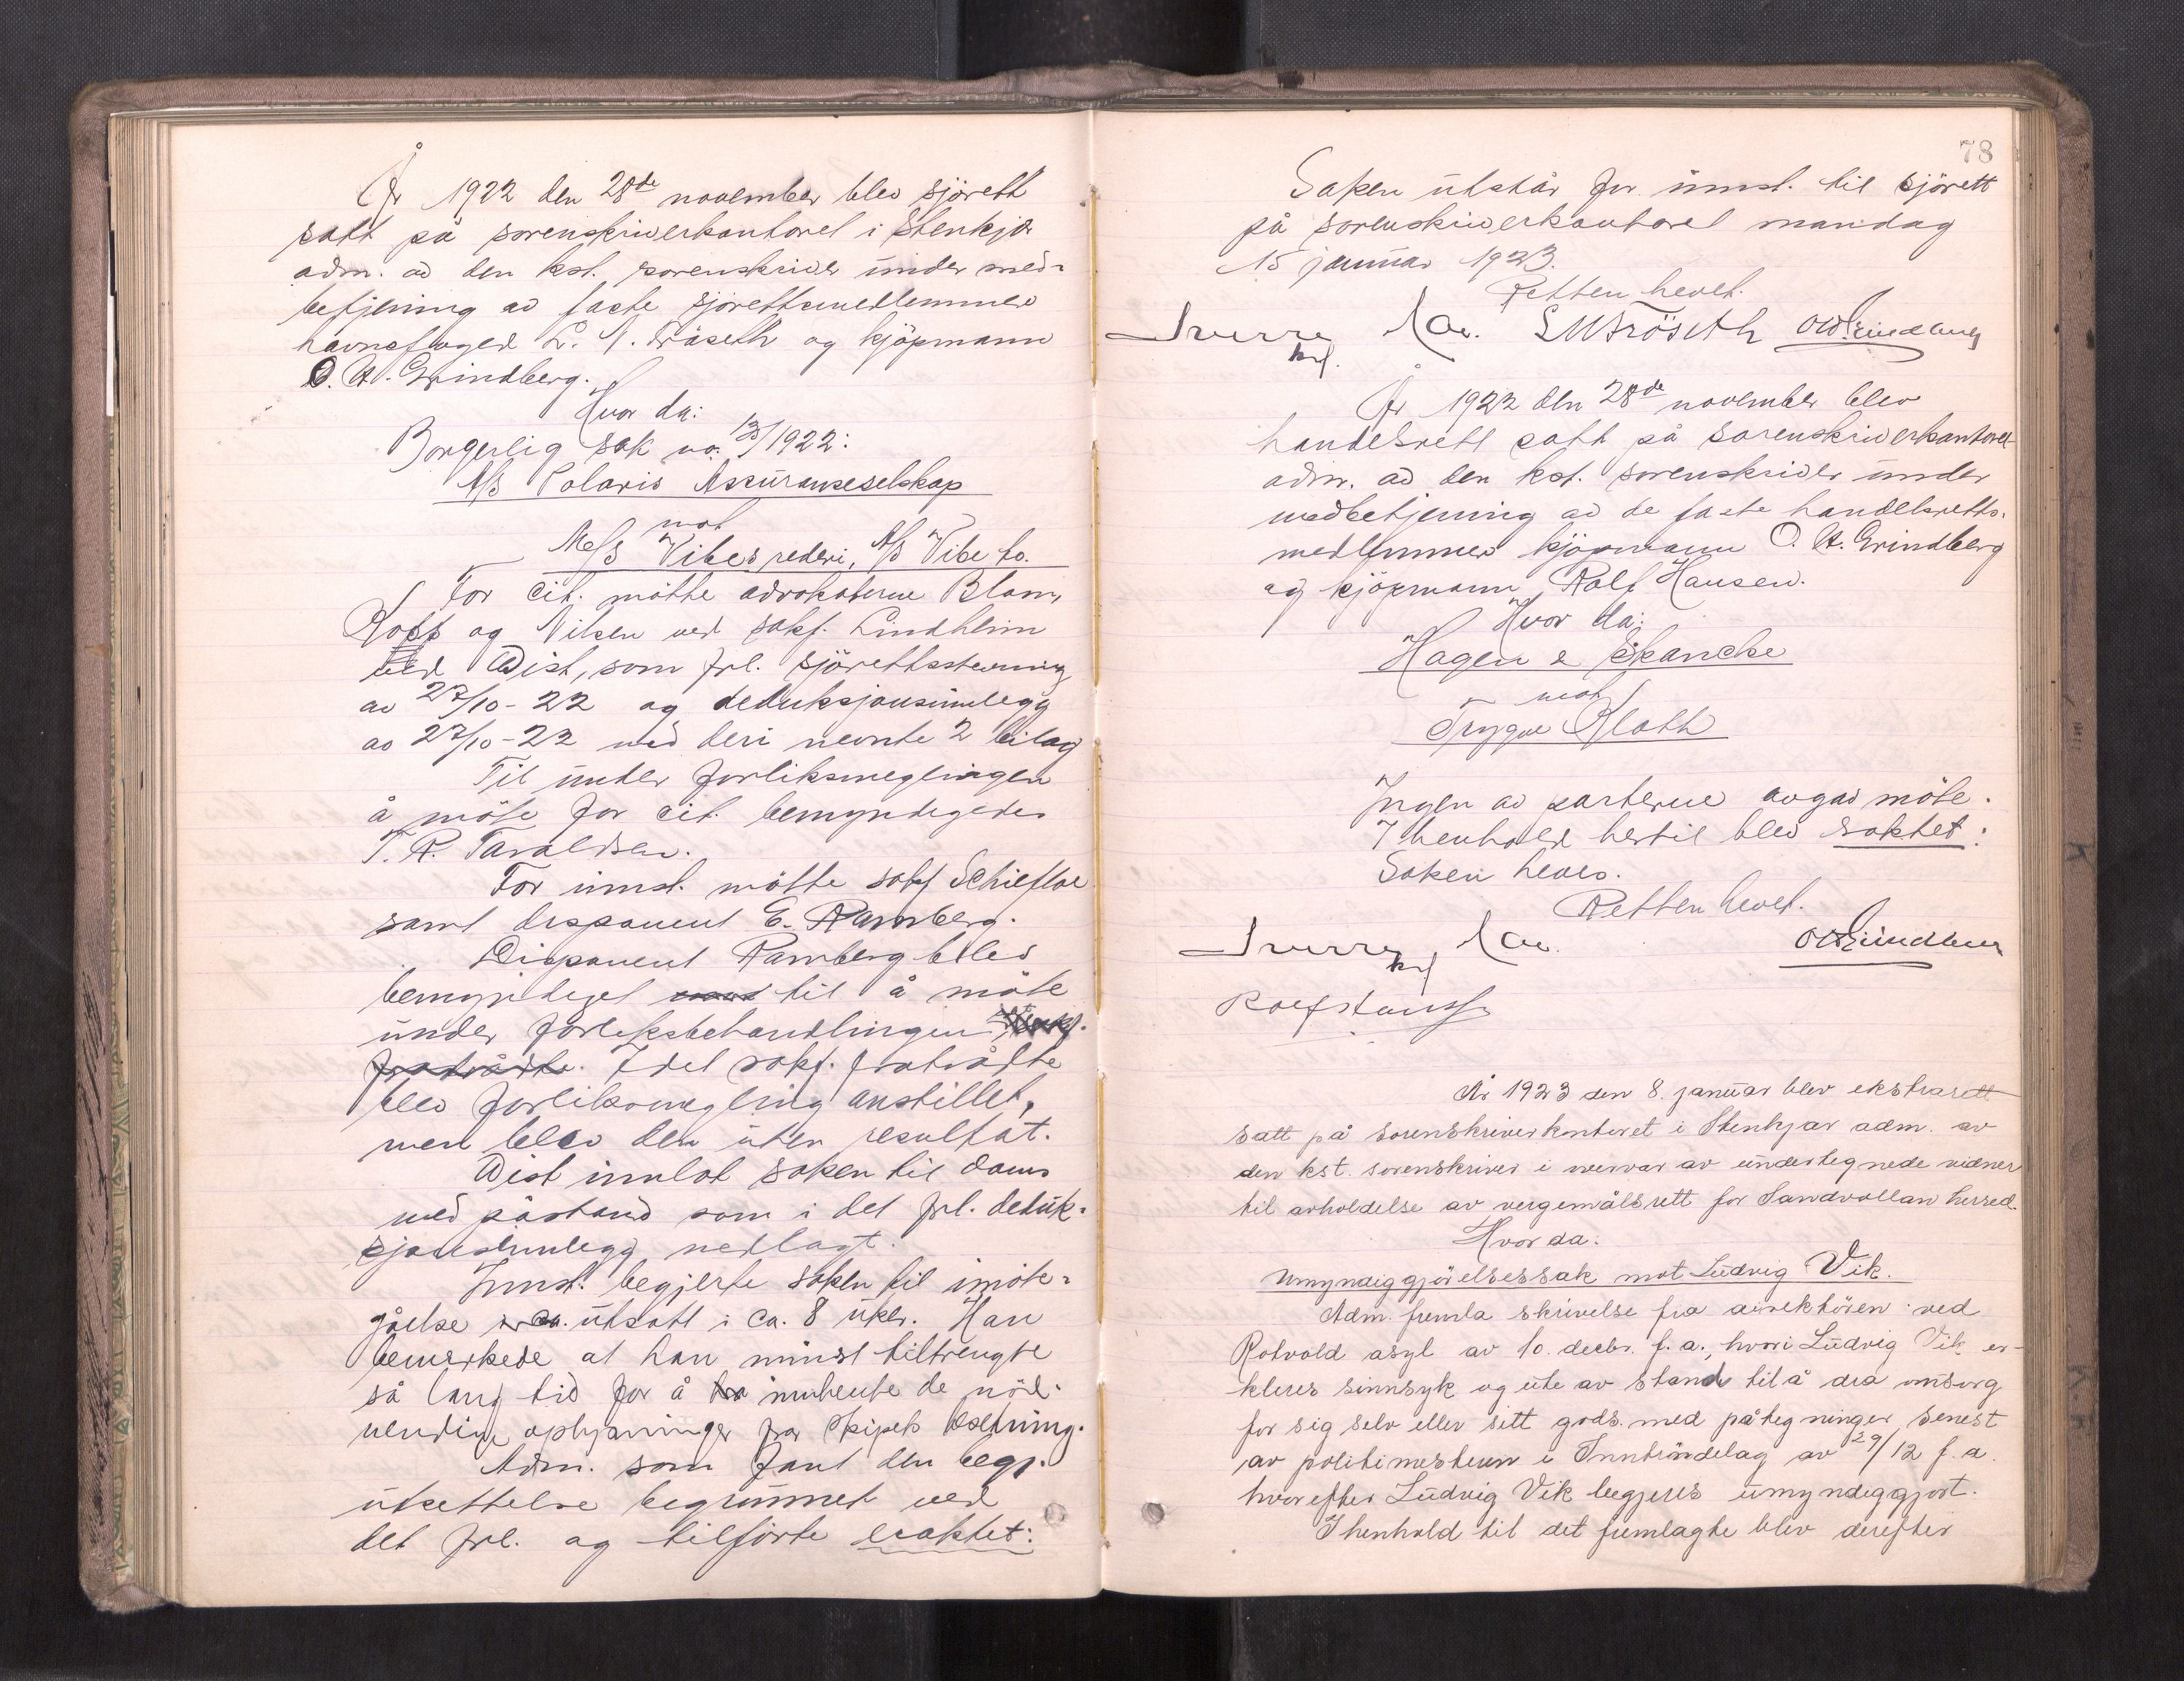 År 1922 den 28de november blev sjörett
satt på sorenskriverkontoret i Stenkjær
adm. av den kst. sorenskriver under med-
betjening av faste sjörettsmedlemmer
havnefoged L. M. Fröseth og kjöpmann
O. A. Grindberg.
Hvor da:
Borgerlig sak no. 13/1922:
A/S Polaris Assuranseselskap
mot
Me/S Vibes rederi, A/S Vibe Co.
For cit. mötte advokaterne Blom,
Roff og Nilsen ved sakf. Lindheim
ved Wist, som frl. sjörettsstevning
av 27/10-22 og deduksjonsinnlegg
av 27/10-22 med deri nevnte 2 bilag
Til under forliksmeglingen
å möte for cit. bemyndigedes
T. R. Taraldsen.
For innst. mötte sakf Schiefloe
samt disponent E. Ramberg.
Disponent Ramberg blev
bemyndiget til å möte
under forliksbehandlingen
fratrådte. Idet sakf. fratrådte
blev forliksmegling anstillet,
men blev den uten resultat.
Wist innlot saken til doms
med påstand som i det frl. deduk-
sjonsinnlegg nedlagt.
Innst. begjerte saken til imöte-
gåelse utsatt i ca. 8 uker. Han
bemerkede at han minst tiltrengte
så lang tid for å innhente de nöd-
vendige oplysninger fra skipets besetning.
Adm. som fant den begj.
utsettelse begrunnet ved
det frl. og tilförte esaktet:
78
Saken utstår for innst. til sjörett
på sorenskriverkontoret mandag
15 januar 1923.
Retten hevet.
Sverre kst. L M Fröseth O A Grindberg
År 1922 den 28de november blev
handelsrett satt på sorenskriverkontoret
adm. av den kst. sorenskriver under
medbetjening av de faste handelsretts-
medlemmer kjöpmann O. A. Grindberg
og kjöpmann Rolf Hansen.
Hvor da:
Hagen & Skancke
mot
Trygve Kloth
Ingen av parterne avgav möte.
I henhold hertil blev saktet:
Saken heves.
Retten hevet.
Sverre kst O A Grindberg
Rolf Hansen
År 1923 den 8. januar blev ekstrarett
satt på sorenskriverkontoret i Stenkjær adm. av
den kst. sorenskriver i overvær av undertegnede vidner
til avholdelse av vergemålsrett for Sandvollan herred.
Hvor da:
Umyndiggjörelsessak mot Ludvig Vik.
Adm. fremla skrivelse fra direktören ved
Rotvold asyl av 10. decbr. f. a., hvori Ludvig Vik er-
kleres sinnsyk og ute av stand til å dra omsorg
for sig selv eller sitt gods. med påtegninger senest
av politimesteren i Inntröndelag av 29/12 f. a.
hvorefter Ludvig Vik begjeres umyndiggjort.
I henhold til det fremlagte blev derefter